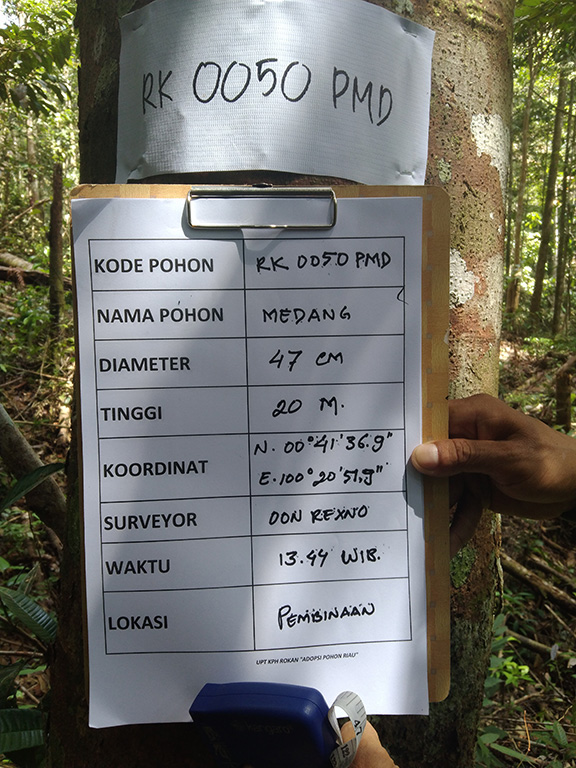 RK 0050 PMD
KODE POHON RK 0050 PMD
NAMA POHON MEDANG
DIAMETER 47 CM
TINGGI 20 M.
KOORDINAT N. 00°41'36.9"
E. 100°20'51,9"
SURVEYOR DON REXNO
WAKTU 13.44 WIB.
LOKASI PEMBINAAN
UPT KPH ROKAN "ADOPSI POHON RIAU"